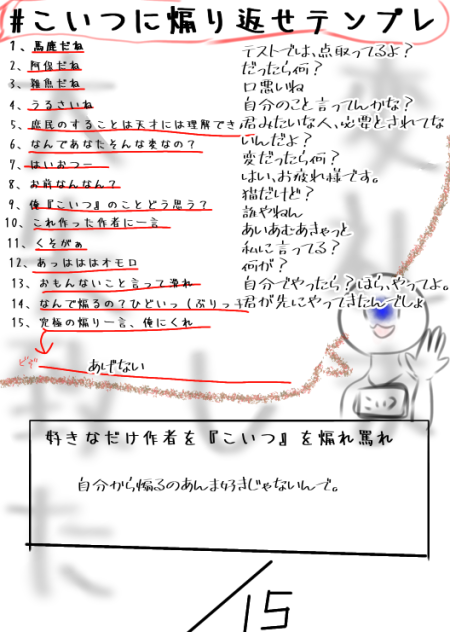 #こいつに煽り返せテンプレ
1、馬鹿だね
テストでは、点取ってるよ?
2、阿保だね
だったら何?
3、雑魚だね
口悪いね
4、うるさいね
自分のこと言ってんかな?
5、庶民のすることは天才には理解でき
君みたいな人、必要とされてな
いんだよ?
6、なんであなたそんな変なの?
変だったら何?
7、はいおつー
はい、お疲れ様です。
8、お前なんなん?
猫だけど?
9、俺『こいつ』のことどう思う?
誰やねん
10、これ作った作者に一言
あいあむあきゃっと
11、くそがぁ
私に言ってる?
12、あっはははオモロ
何が?
13、おもんないこと言って滑れ
自分でやったら?ほら、やってよ。
14、なんで煽るの?ひどいっ(ぶりっ子
君が先にやってきたんでしょ
15、究極の煽り一言、俺にくれ
あげない
こいつ
好きなだけ作者を『こいつ』を煽れ罵れ
自分から煽るのあんま好きじゃないんで。
/15